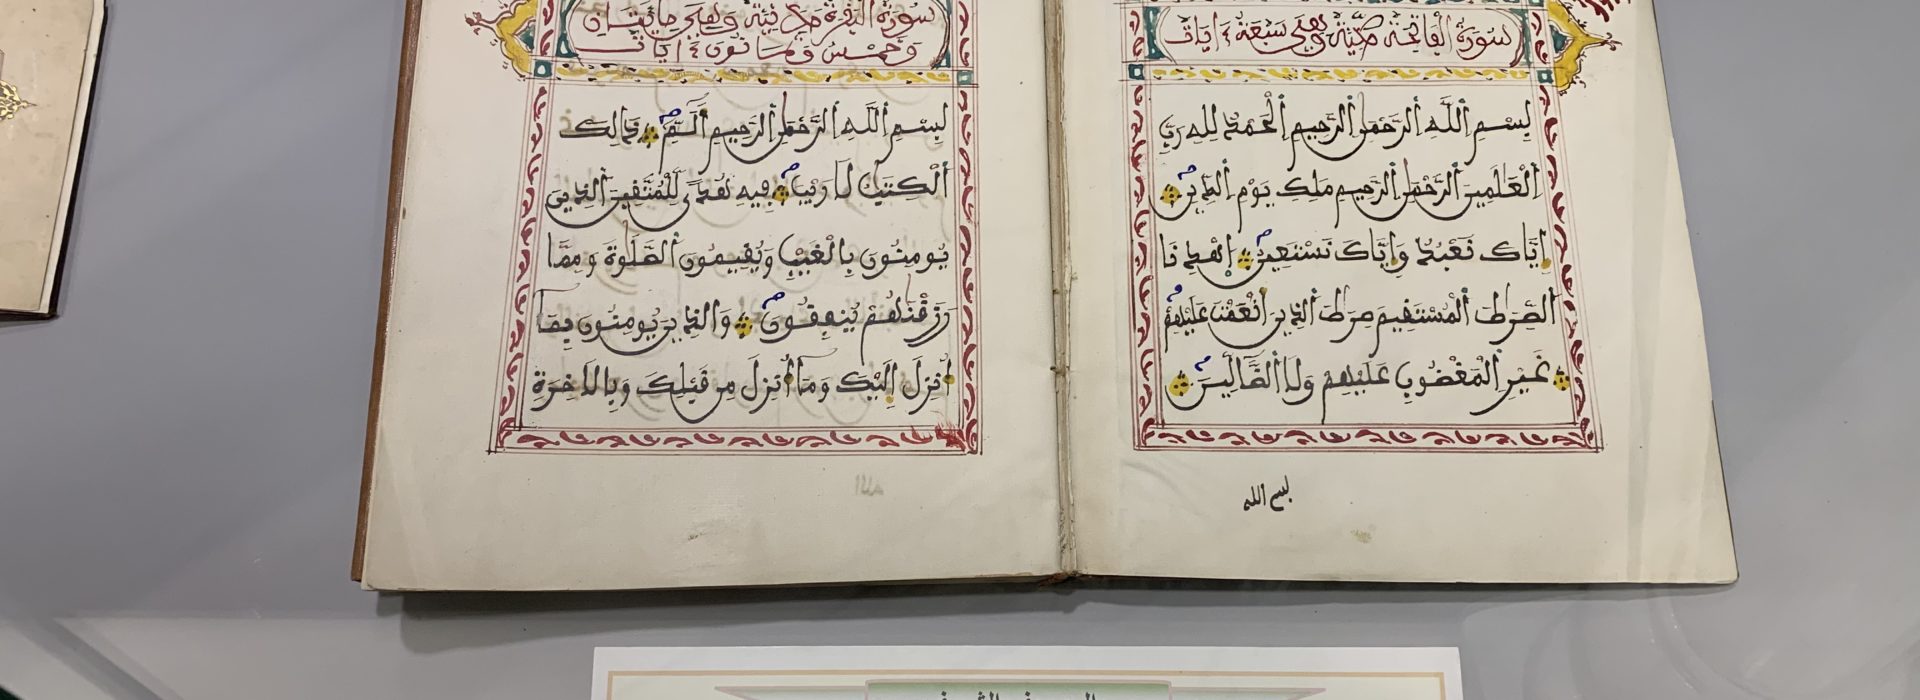 سورة الفاتحة مكية وهى سبعة ءايات
بِسْمِ اللَّهِ الرَّحْمَٰنِ الرَّحِيمِ الْحَمْدُ لِلهِ رَبِّ
الْعَٰلَمِينَ الرَّحْمَٰنِ الرَّحِيمِ مَلِكِ يَوْمِ الدِّينِ
إِيَّاكَ نَعْبُدُ وَإِيَّاكَ نَسْتَعِينُ اهْدِنَا
الصِّرَٰطَ الْمُسْتَقِيمَ صِرَٰطَ الذِينَ أَنْعَمْتَ عَلَيْهِمْ
غَيْرِ الْمَغْضُوبِ عَلَيْهِمْ وَلَا الضَّالِّينَ
بسم الله
سورة البقرة مدنية وهى مايتان
وخمس وثمانون ءايات
بِسْمِ اللَّهِ الرَّحْمَٰنِ الرَّحِيمِ أَلَمِّ ذَٰلِكَ
الْكِتَٰبُ لَا رَيْبَ فِيهِ هُدًى لِّلْمُتَّقِينَ الذِينَ
يُومِنُونَ بِالْغَيْبِ وَيُقِيمُونَ الصَّلَوٰةَ وَمِمَّا
رَزَقْنَٰهُمْ يُنفِقُونَ وَالذِينَ يُومِنُونَ بِمَا
أُنزِلَ إِلَيْكَ وَمَا أُنزِلَ مِن قَبْلِكَ وَبِالَاخِرَةِ
المصحف الشريف